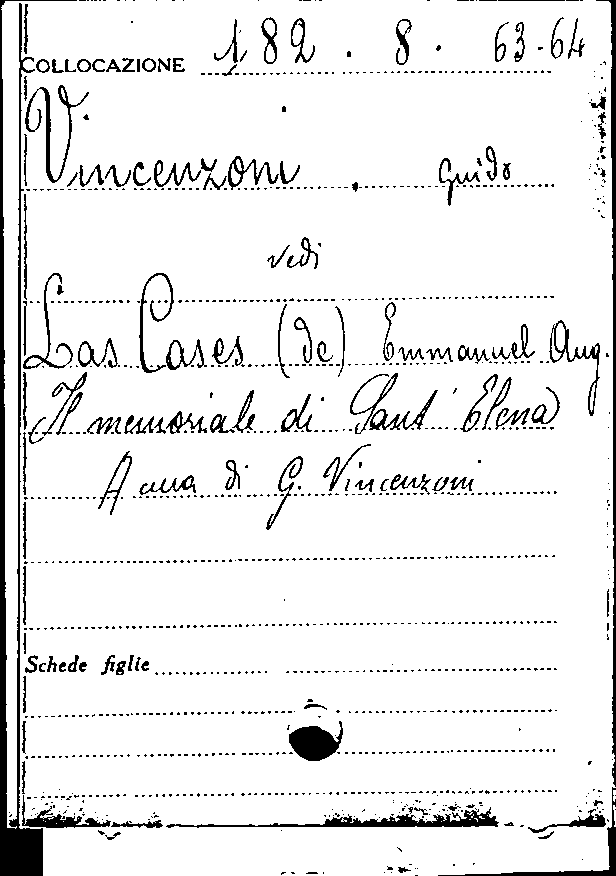 COLLOCAZIONE 182 . 8 . 63-64
Vincenzoni . Guido
vedi
Las Cases (de) Emmanuel Aug.
Il memoriale di Sant'Elena
A cura di G. Vincenzoni
Schede figlie